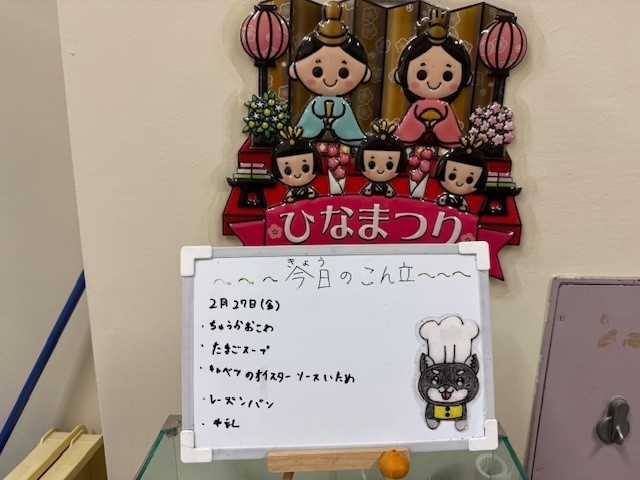 ひなまつり
～～～今日のこん立～～～
きょう
2月27日(金)
・ちゅうかおこわ
・たまごスープ
・キャベツのオイスターソースいため
・レーズンパン
・牛乳